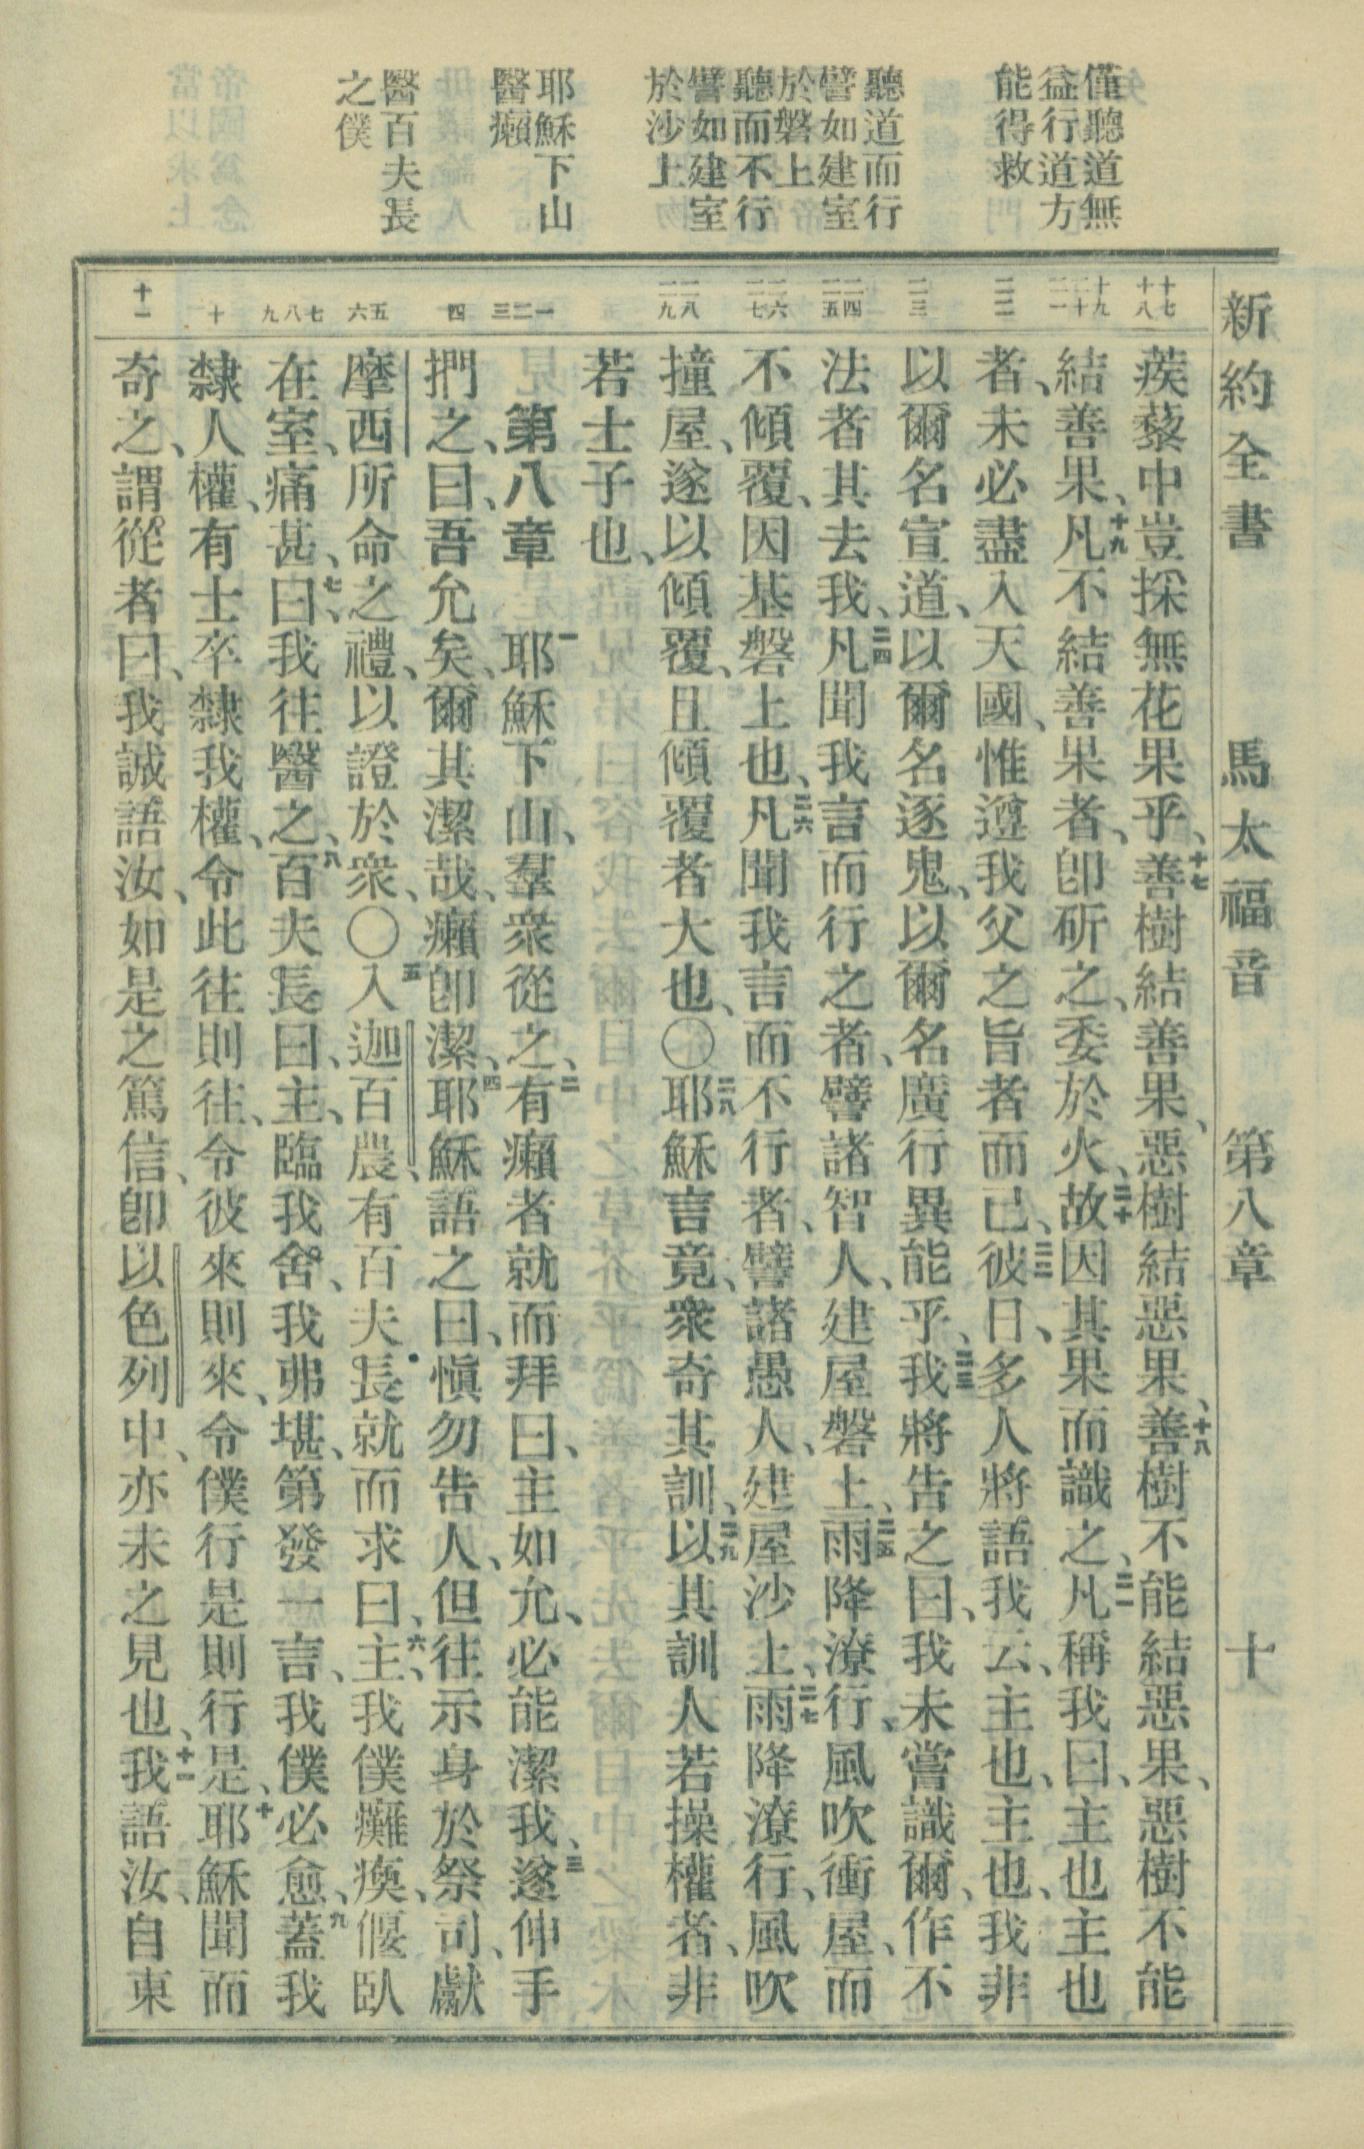 僅聽道無
益行道方
能得救
聽道而行
譬如建室
於磐上
聽而不行
譬如建室
於沙上
耶穌下山
醫癩
醫百夫長
之僕
新約全書 馬太福音 第八章 十
蒺藜中豈採無花果乎、十七善樹結善果、惡樹結惡果、十八善樹不能結惡果、惡樹不能
結善果、十九凡不結善果者、卽斫之、委於火、二十故因其果而識之、二一凡稱我曰、主也主也
者、未必盡入天國、惟遵我父之旨者而已、二二彼日、多人將語我云、主也、主也、我非
以爾名宣道、以爾名逐鬼、以爾名廣行異能乎、二三我將告之曰、我未嘗識爾、作不
法者其去我、二四凡聞我言而行之者、譬諸智人、建屋磐上、二五雨降潦行、風吹衝屋、而
不傾覆、因基磐上也、二六凡聞我言而不行者、譬諸愚人、建屋沙上、二七雨降潦行、風吹
撞屋、遂以傾覆、且傾覆者大也、〇二八耶穌言竟、衆奇其訓、二九以其訓人若操權者、非
若士子也、
第八章 一耶穌下山、羣衆從之、二有癩者就而拜曰、主如允、必能潔我、三遂伸手
捫之、曰、吾允矣、爾其潔哉、癩卽潔、四耶穌語之曰、愼勿告人、但往示身於祭司、獻
摩西所命之禮、以證於衆、〇五入迦百農、有百夫長就而求曰、六主、我僕癱瘓、偃臥
在室、痛甚、七曰、我往醫之、八百夫長曰、主、臨我舍、我弗堪、第發一言、我僕必愈、九蓋我
隸人權、有士卒隸我權、令此往則往、令彼來則來、令僕行是則行是、十耶穌聞而
奇之、謂從者曰、我誠語汝、如是之篤信、卽以色列中、亦未之見也、十一我語汝、自東